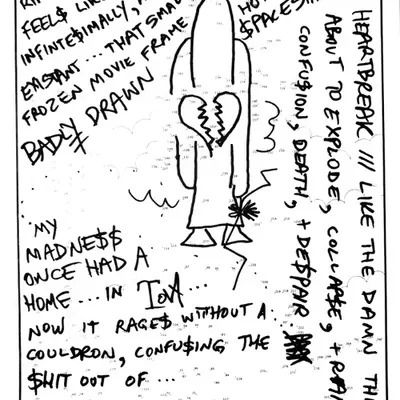 FEEL$ LIK
INFINTE$IMALLY,
EXISTANT... THAT SMA
FROZEN MOVIE FRAME
BADLY DRAWN
HO
$PACE$
HEARTBREAK /// LIKE THE DAMN THI
ABOUT TO EXPLODE, COLLAP$E, + RAI
CONFU$ION, DEATH, + DE$PAIR.
MY
MADNE$$
ONCE HAD A
HOME... IN TOVA...
NOW IT RAGE$ WITHOUT A
COULDRON, CONFU$ING THE
$HIT OUT OF ...